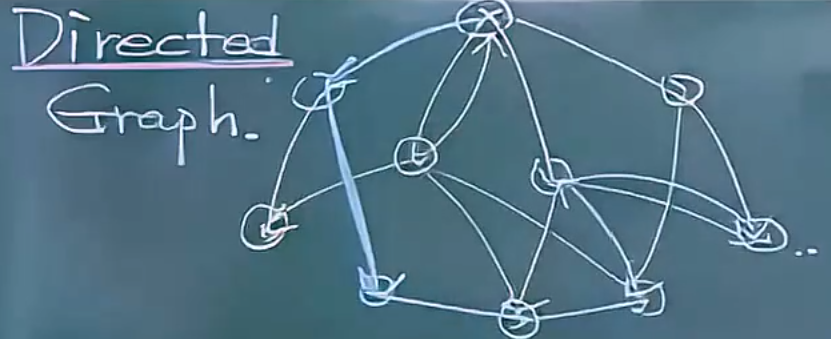 Directed
Graph.